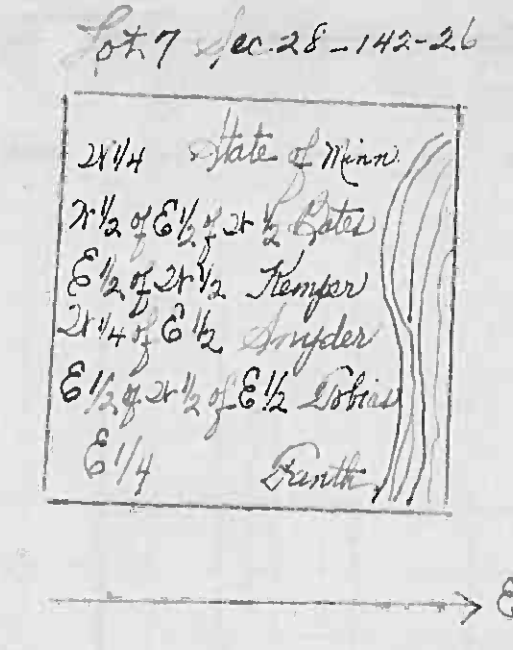 Lot 7 Sec. 28-142-26
W 1/4 State of Minn.
W 1/2 of E 1/2 of W 1/2 Bates
E 1/2 of W 1/2 Kemper
W 1/4 of E 1/2 Snyder
E 1/2 of W 1/2 of E 1/2 Tobias
E 1/4
E